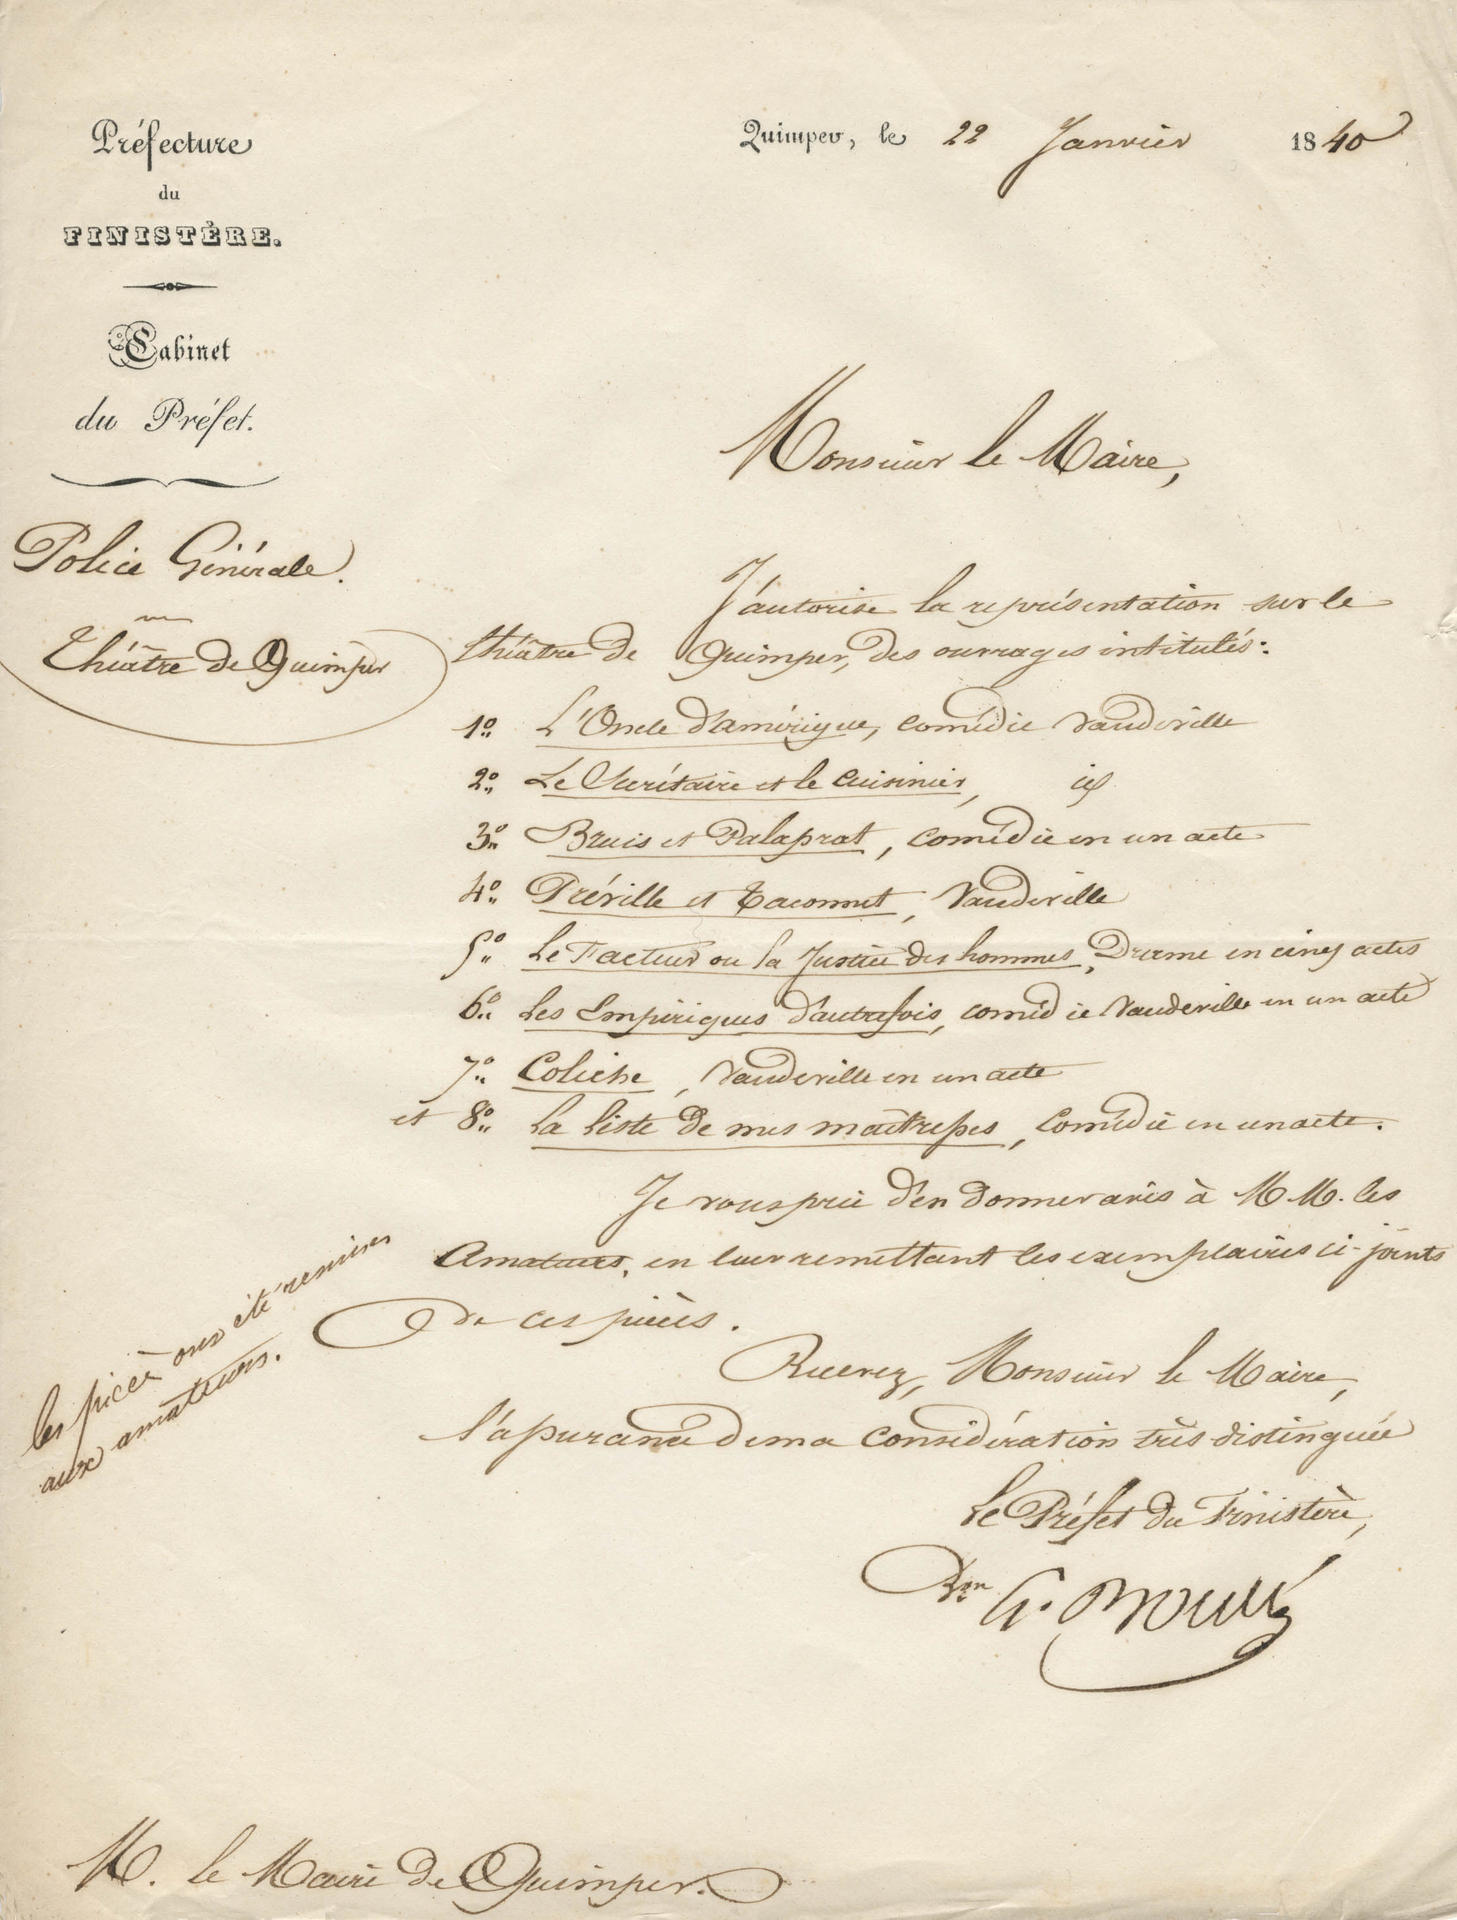 Préfecture
du
FINISTÈRE.
Cabinet
du Préfet.
Police Générale.
Théâtre de Quimper
Quimper, le 22 Janvier 1840
Monsieur le Maire,
J'autorise la représentation sur le
théâtre de Quimper, des ouvrages intitulés:
1o. L'Oncle d'amérique, comédie Vaudeville
2o. Le Secrétaire et le Cuisinier, id
3o. Brueis et Palaprat, comédie en un acte
4o. Préville et Taconnet, Vaudeville
5o. Le Facteur ou la Justice des hommes, Drame en cinq actes
6o. Les Empiriques d'autrefois, comédie Vaudeville en un acte
7o. Coliche, Vaudeville en un acte
et 8o. La liste de mes maîtresses, Comédie en un acte.
Je vous prie d'en donner avis à M M. les
Amateurs, en leur remettant les exemplaires ci-joints
de ces pièces.
Recevez, Monsieur le Maire,
l'assurance de ma considération très distinguée
Le Préfet du Finistère,
Bon G. Boullé
les pièces ont été remises
aux amateurs.
M. le Maire de Quimper.